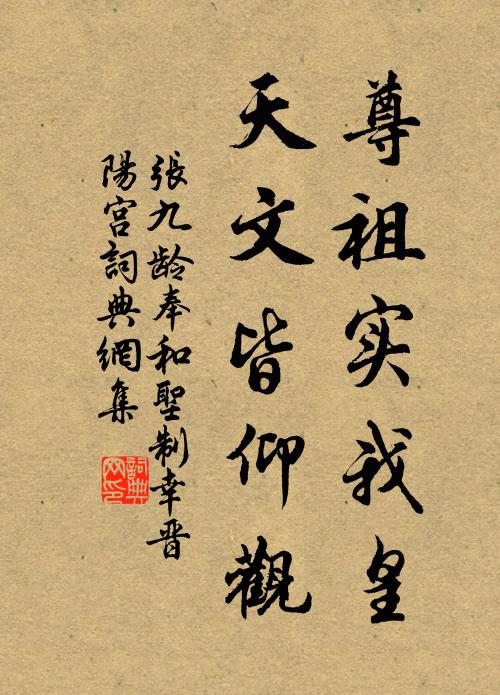 尊祖实我皇
天文皆仰觀
張九龄奉和聖制幸晋
陽宫詞典網集
詞典网印